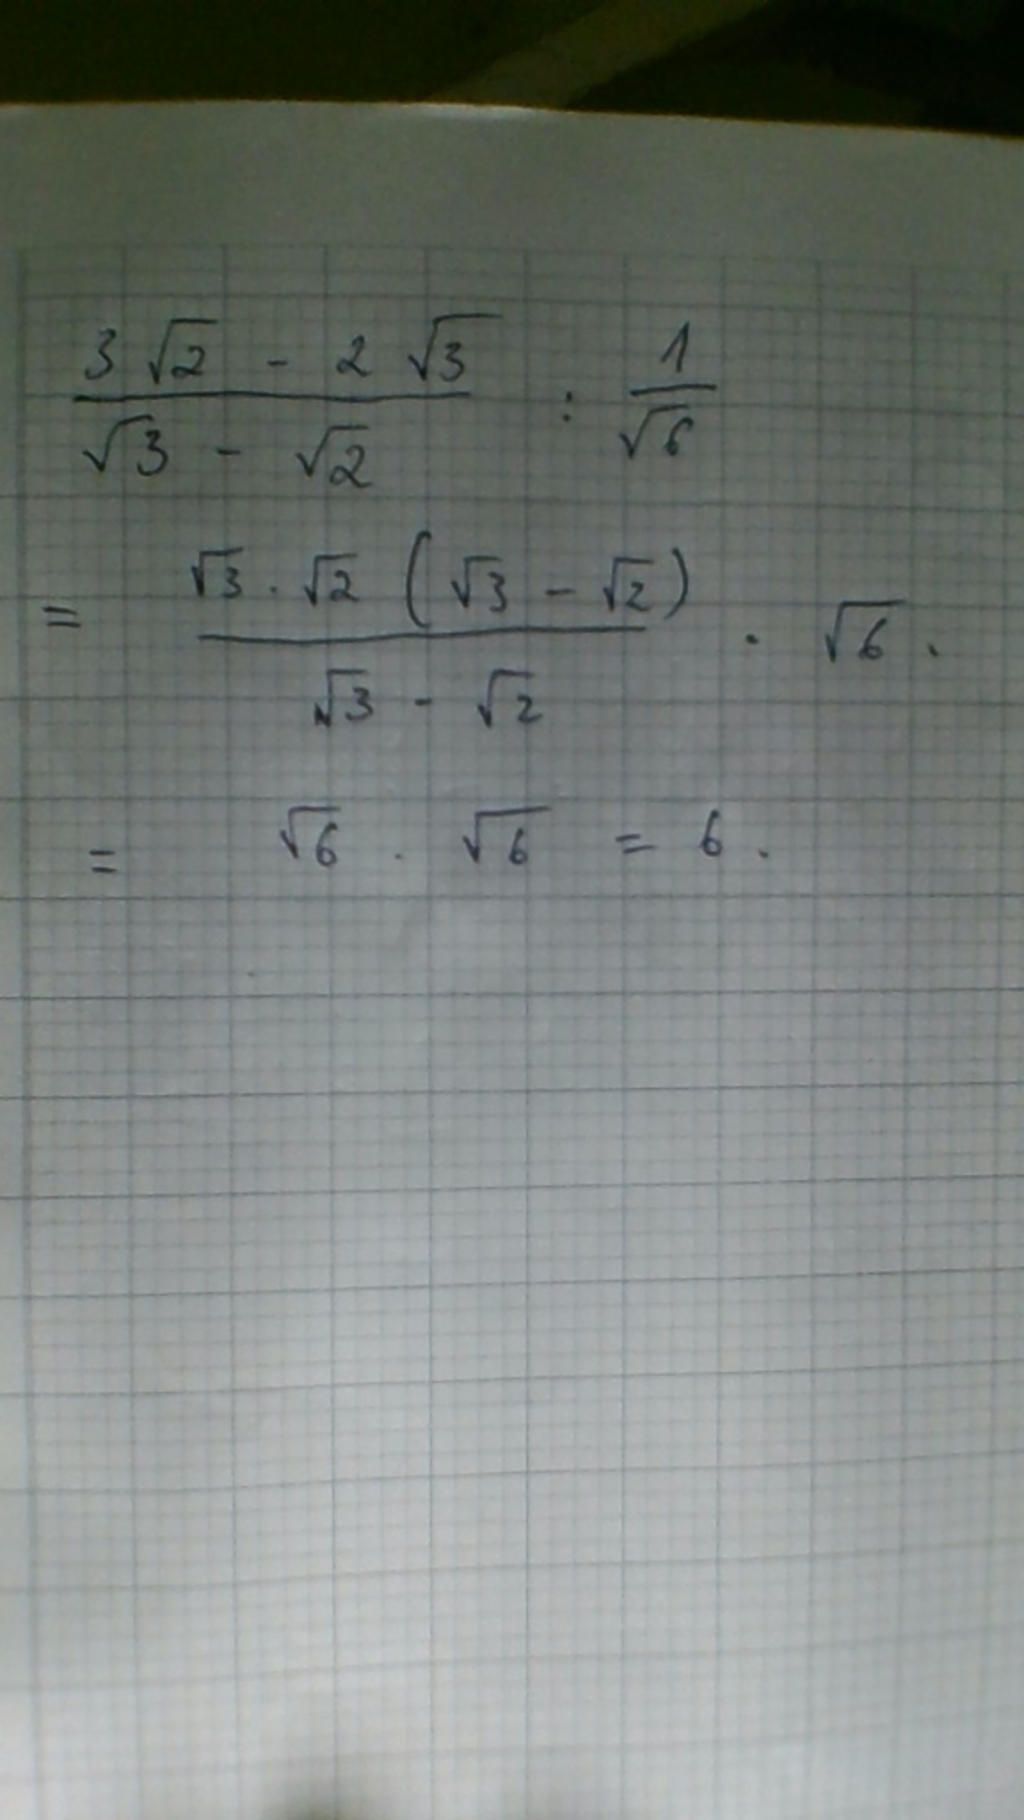 3√2 - 2√3 / √3 - √2 : 1 / √6
= √3 . √2 (√3 - √2) / √3 - √2 . √6 .
= √6 . √6 = 6 .